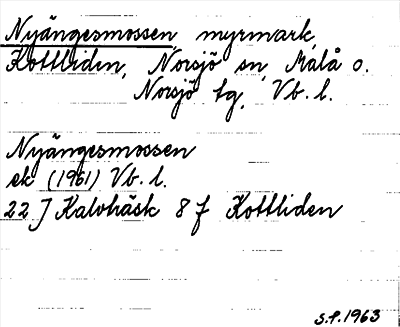 Nyängesmossen, myrmark,
Kottliden, Norsjö sn, Malå o.
Norsjö tg, Vb. l.
Nyängesmossen
ek (1961) Vb. l.
22 J Kalvträsk 8 f Kottliden
S.P. 1963